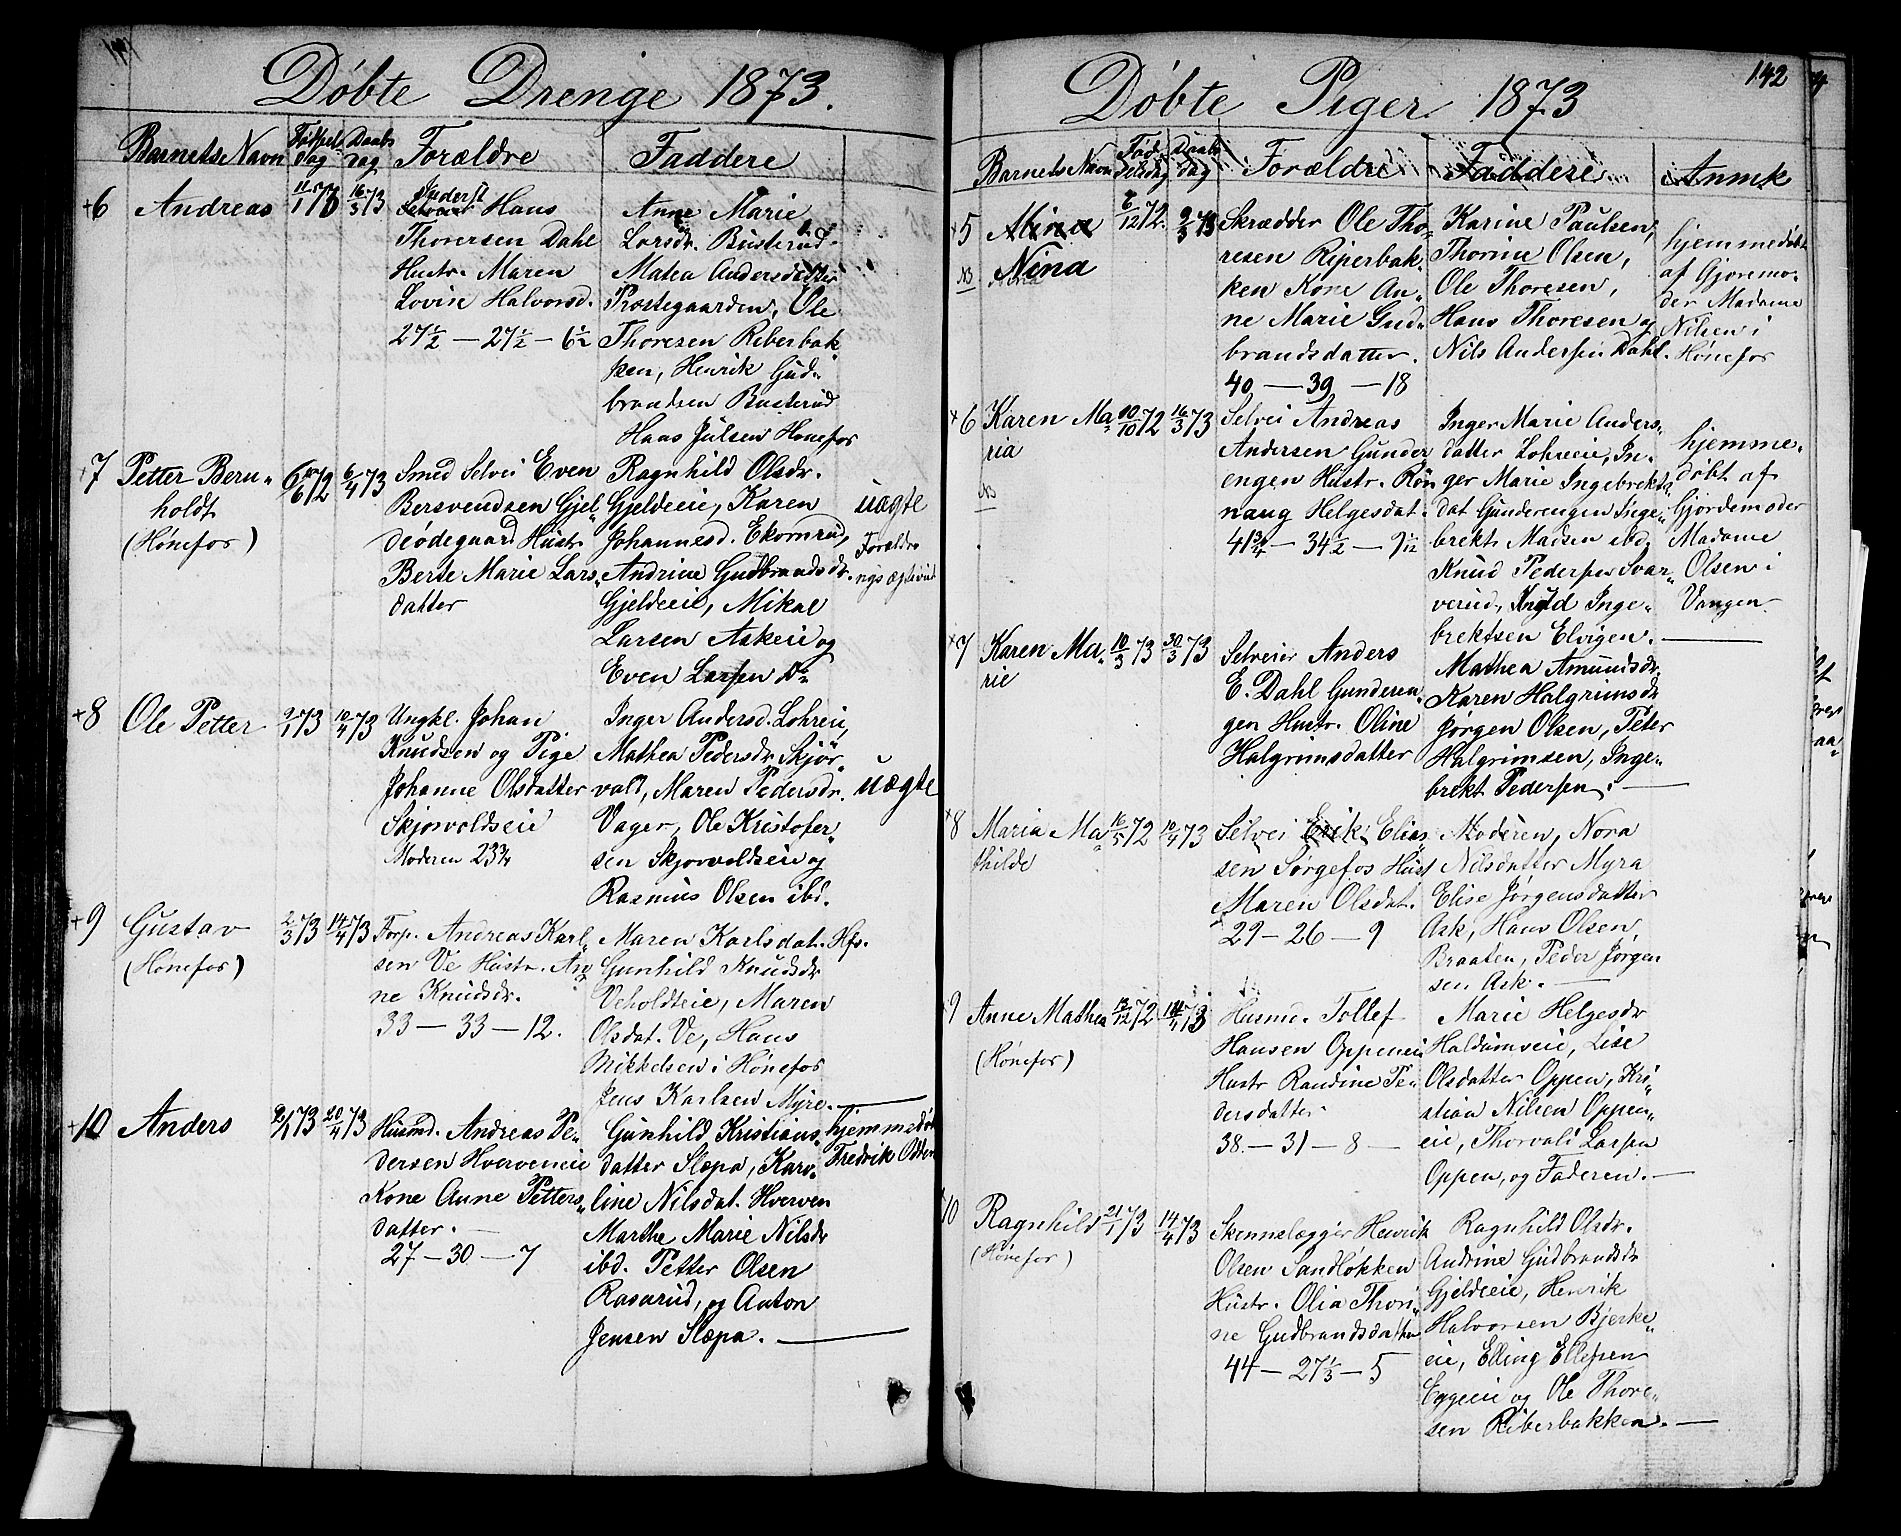 Døbte Drenge 1873.
Barnets Navn Fødsels dag Daabs dag Forældre Faddere
+6 Andreas 11/1 73 16/3 73
Inderst
Selveier Hans
Thoresen Dahl
Hustr. Maren
Lovise Halvorsd.
27½ — 27½ — 6½
Anne Marie
Larsdr. Busterud
Matea Andersdatter
Præstegaarden, Ole
Thoresen Riberbak„
ken, Henrik Gud„
brandsen Busterud
Hans Julsen Hønefos
+7 Petter Bern„
holdt
(Hønefos)
6/4 73
Smed Selvei Even
Bersvendsen Gjel„
deødegaard Hustr.
Berte Marie Lars„
datter
Ragnhild Olsdr.
Gjeldeeie, Karen
Johannesd. Ekornrud,
Andrine Gudbrandsdr.
Gjeldeeie, Mikal
Larsen Askeie og
Even Larsen Do
uægte
Forældre
+8 Ole Petter 9/1 73 10/4 73
Ungkl. Johan
Knudsen og Pige
Johanne Olsdatter
Skjorvoldseie
Moderen 23¾
Inger Andersd. Lohreie,
Mathea Pedersdr. Skjør„
vald, Maren Pedersdr.
Vager, Ole Kristofer„
sen Skjorvoldseie og
Rasmus Olsen ibd.
uægte
+9 Gustav
(Hønefos)
2/3 73 14/4 73
Forp. Andreas Karl„
sen Ve Hustr. An„
ne Knudsdr.
33 — 33 — 12.
Maren Karlsdat. Hfs.
Gunhild Knudsdr
Veholdteie, Maren
Olsdat. Ve, Hans
Mikkelsen i Hønefos
Jens Karlsen Myre.
+10 Anders 2/1 73 20/4 73
Husmd. Andreas Pe„
dersen Hverveneie
Kone Anne Petters„
datter.
27 — 30 — 7
Gunhild Kristians„
datter Slæpa, Karo„
line Nilsdat. Hverven
Marthe Marie Nilsdr
ibd. Petter Olsen
Rasarud, og Anton
Jensen Slæpa.
hjemmedøbt
Fredrik Odden
142
Døbte Piger 1873
Barnets Navn Fødselsdag Daabsdag Forældre Faddere Anmk
+5 Mina
NB Nina
Nina
6/12 72. 2/3 73
Skrædder Ole Tho„
resen Riperbak„
ken Kone An„
ne Marie Gud„
brandsdatter.
40 — 39 — 18
Karine Paulsen,
Thorine Olsen,
Ole Thoresen,
Hans Thoresen og
Nils Andersen Dahl.
hjemmedøbt
af Gjoremo„
der Madame
Nilsen i
Hønefos
+6 Karen Ma„
ria
NB
10/10 72 16/3 73
Selvei Andreas
Andersen Gunder
engen Hustr. Rön„
naug Helgesdat.
41¾ — 34½ — 9 1/12
Inger Marie Anders„
datter Lohreeie, In„
ger Marie Ingebrekts„
dat Gunderengen Inge„
brekt Madsen ibd.
Knud Pedersen Svar„
verud, Inge„
brektsen Elvigen.
hjemme„
døbt af
Gjördemoder
Madame
Olsen i
Vangen
+7 Karen Ma„
rie
10/3 73 30/3 73
Selveier Anders
E. Dahl Gunderen„
gen Hustr. Oline
Halgrimsdatter
Mathea Amundsdr.
Karen Halgrimsdr
Jørgen Olsen, Peter
Halgrimsen, Inge„
brekt Pedersen.
+8 Maria Ma„
thilde
16/5 72 10/4 73
Selvei Erik Elias„
sen Sørgefos Hust
Maren Olsdat.
29 — 26 — 9
Moderen, Nora
Nilsdatter Myra
Elise Jørgensdatter
Ask, Hans Olsen,
Braaten, Peder Jørgen
sen Ask.
+9 Anne Mathea
(Hønefos)
13/12 72 14/4 73
Husmd. Tollef
Hansen Oppeneie
Hustr Randine Pe„
dersdatter.
38. — 31 — 8
Marie Helgesdr
Haldumseie, Lise
Olsdatter Oppen, Kri„
stian Nilsen Oppen„
eie, Thorvald Larsen
Oppen, og Faderen.
10 Ragnhild
(Hønefos)
21/1 73 14/4 73
Skinnelægger Henrik
Olsen Sandløkken
Hustr. Olia Thori„
ne Gudbrandsdatter
44 — 27⅓ — 5
Ragnhild Olsdr.
Andrine Gudbrandsdr
Gjeldeeie, Henrik
Halvorsen Bjerke„
eie, Elling Ellefsen
Eggeeie og Ole Thore„
sen Riberbakken.